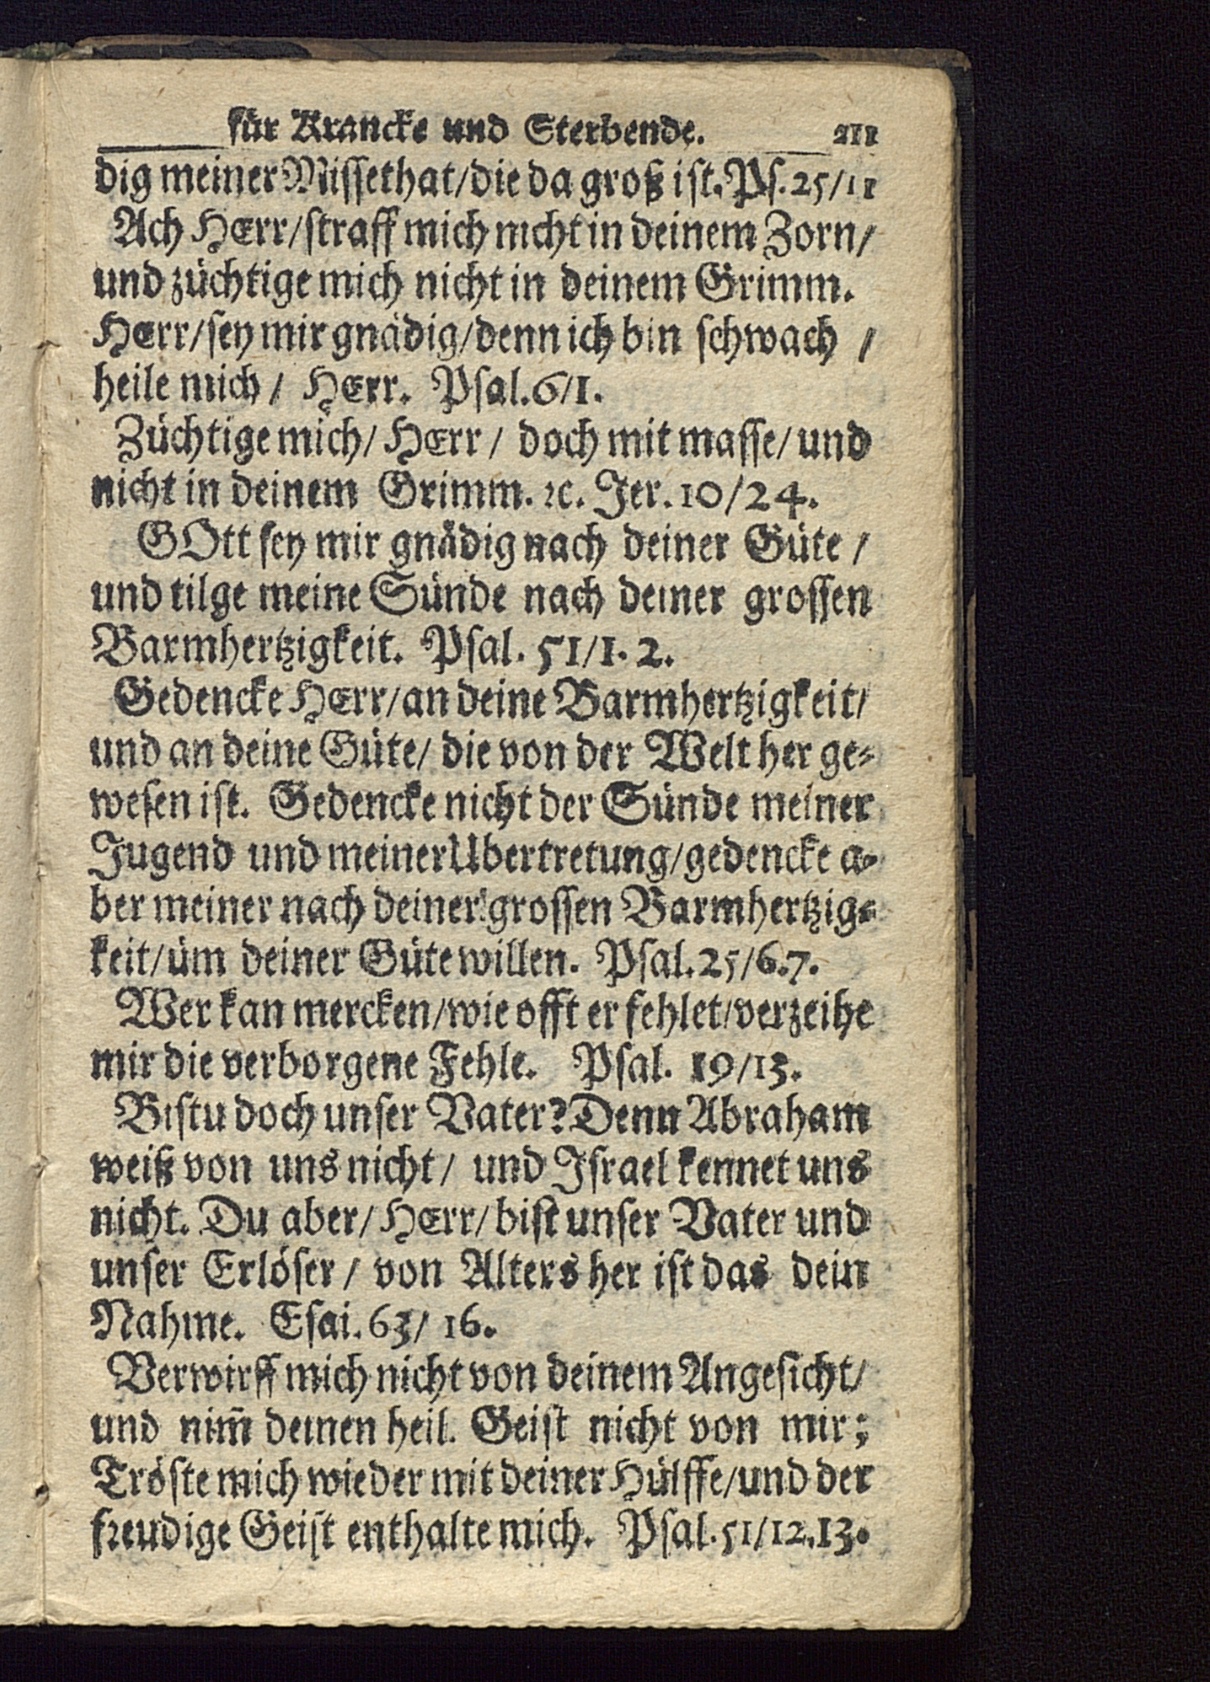 für Krancke und Sterbende. 211
dig meiner Missethat/die da groß ist. Ps. 25/11
Ach HErr/straff mich nicht in deinem Zorn/
und züchtige mich nicht in deinem Grimm.
HErr/sey mir gnädig/denn ich bin schwach /
heile mich / HErr. Psal. 6/1.
Züchtige mich/ HErr / doch mit masse/ und
nicht in deinem Grimm. ꝛc. Jer. 10/24.
GOtt sey mir gnädig nach deiner Güte /
und tilge meine Sünde nach deiner grossen
Barmhertzigkeit. Psal. 51/1. 2.
Gedencke HErr/an deine Barmhertzigkeit/
und an deine Güte/ die von der Welt her ge-
wesen ist. Gedencke nicht der Sünde meiner
Jugend und meiner Ubertretung/gedencke a-
ber meiner nach deiner grossen Barmhertzig-
keit/üm deiner Güte willen. Psal. 25/6.7.
Wer kan mercken/wie offt er fehlet/verzeihe
mir die verborgene Fehle. Psal. 19/13.
Bistu doch unser Vater? Denn Abraham
weiß von uns nicht/ und Israel kennet uns
nicht. Du aber/ HErr/ bist unser Vater und
unser Erlöser / von Alters her ist das dein
Nahme. Esai. 63/ 16.
Verwirff mich nicht von deinem Angesicht/
und nim̄ deinen heil. Geist nicht von mir;
Tröste mich wieder mit deiner Hülffe/und der
freudige Geist enthalte mich. Psal. 51/12.13.